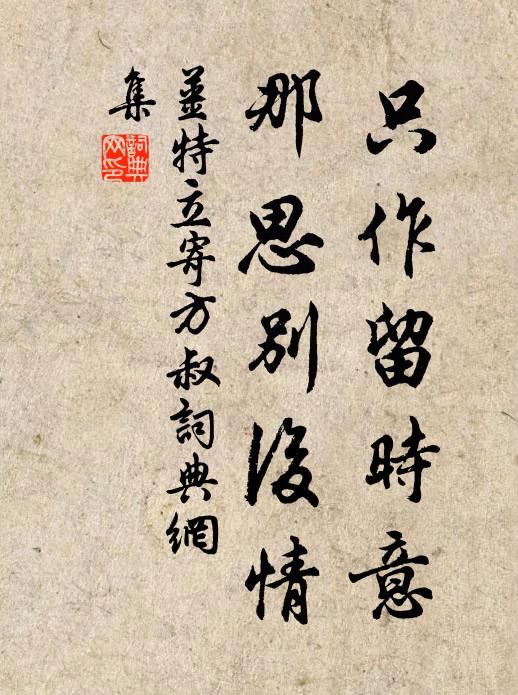 只作留時意
那思別後情
薑特立寄方叔詞典網
集
詞典
网印